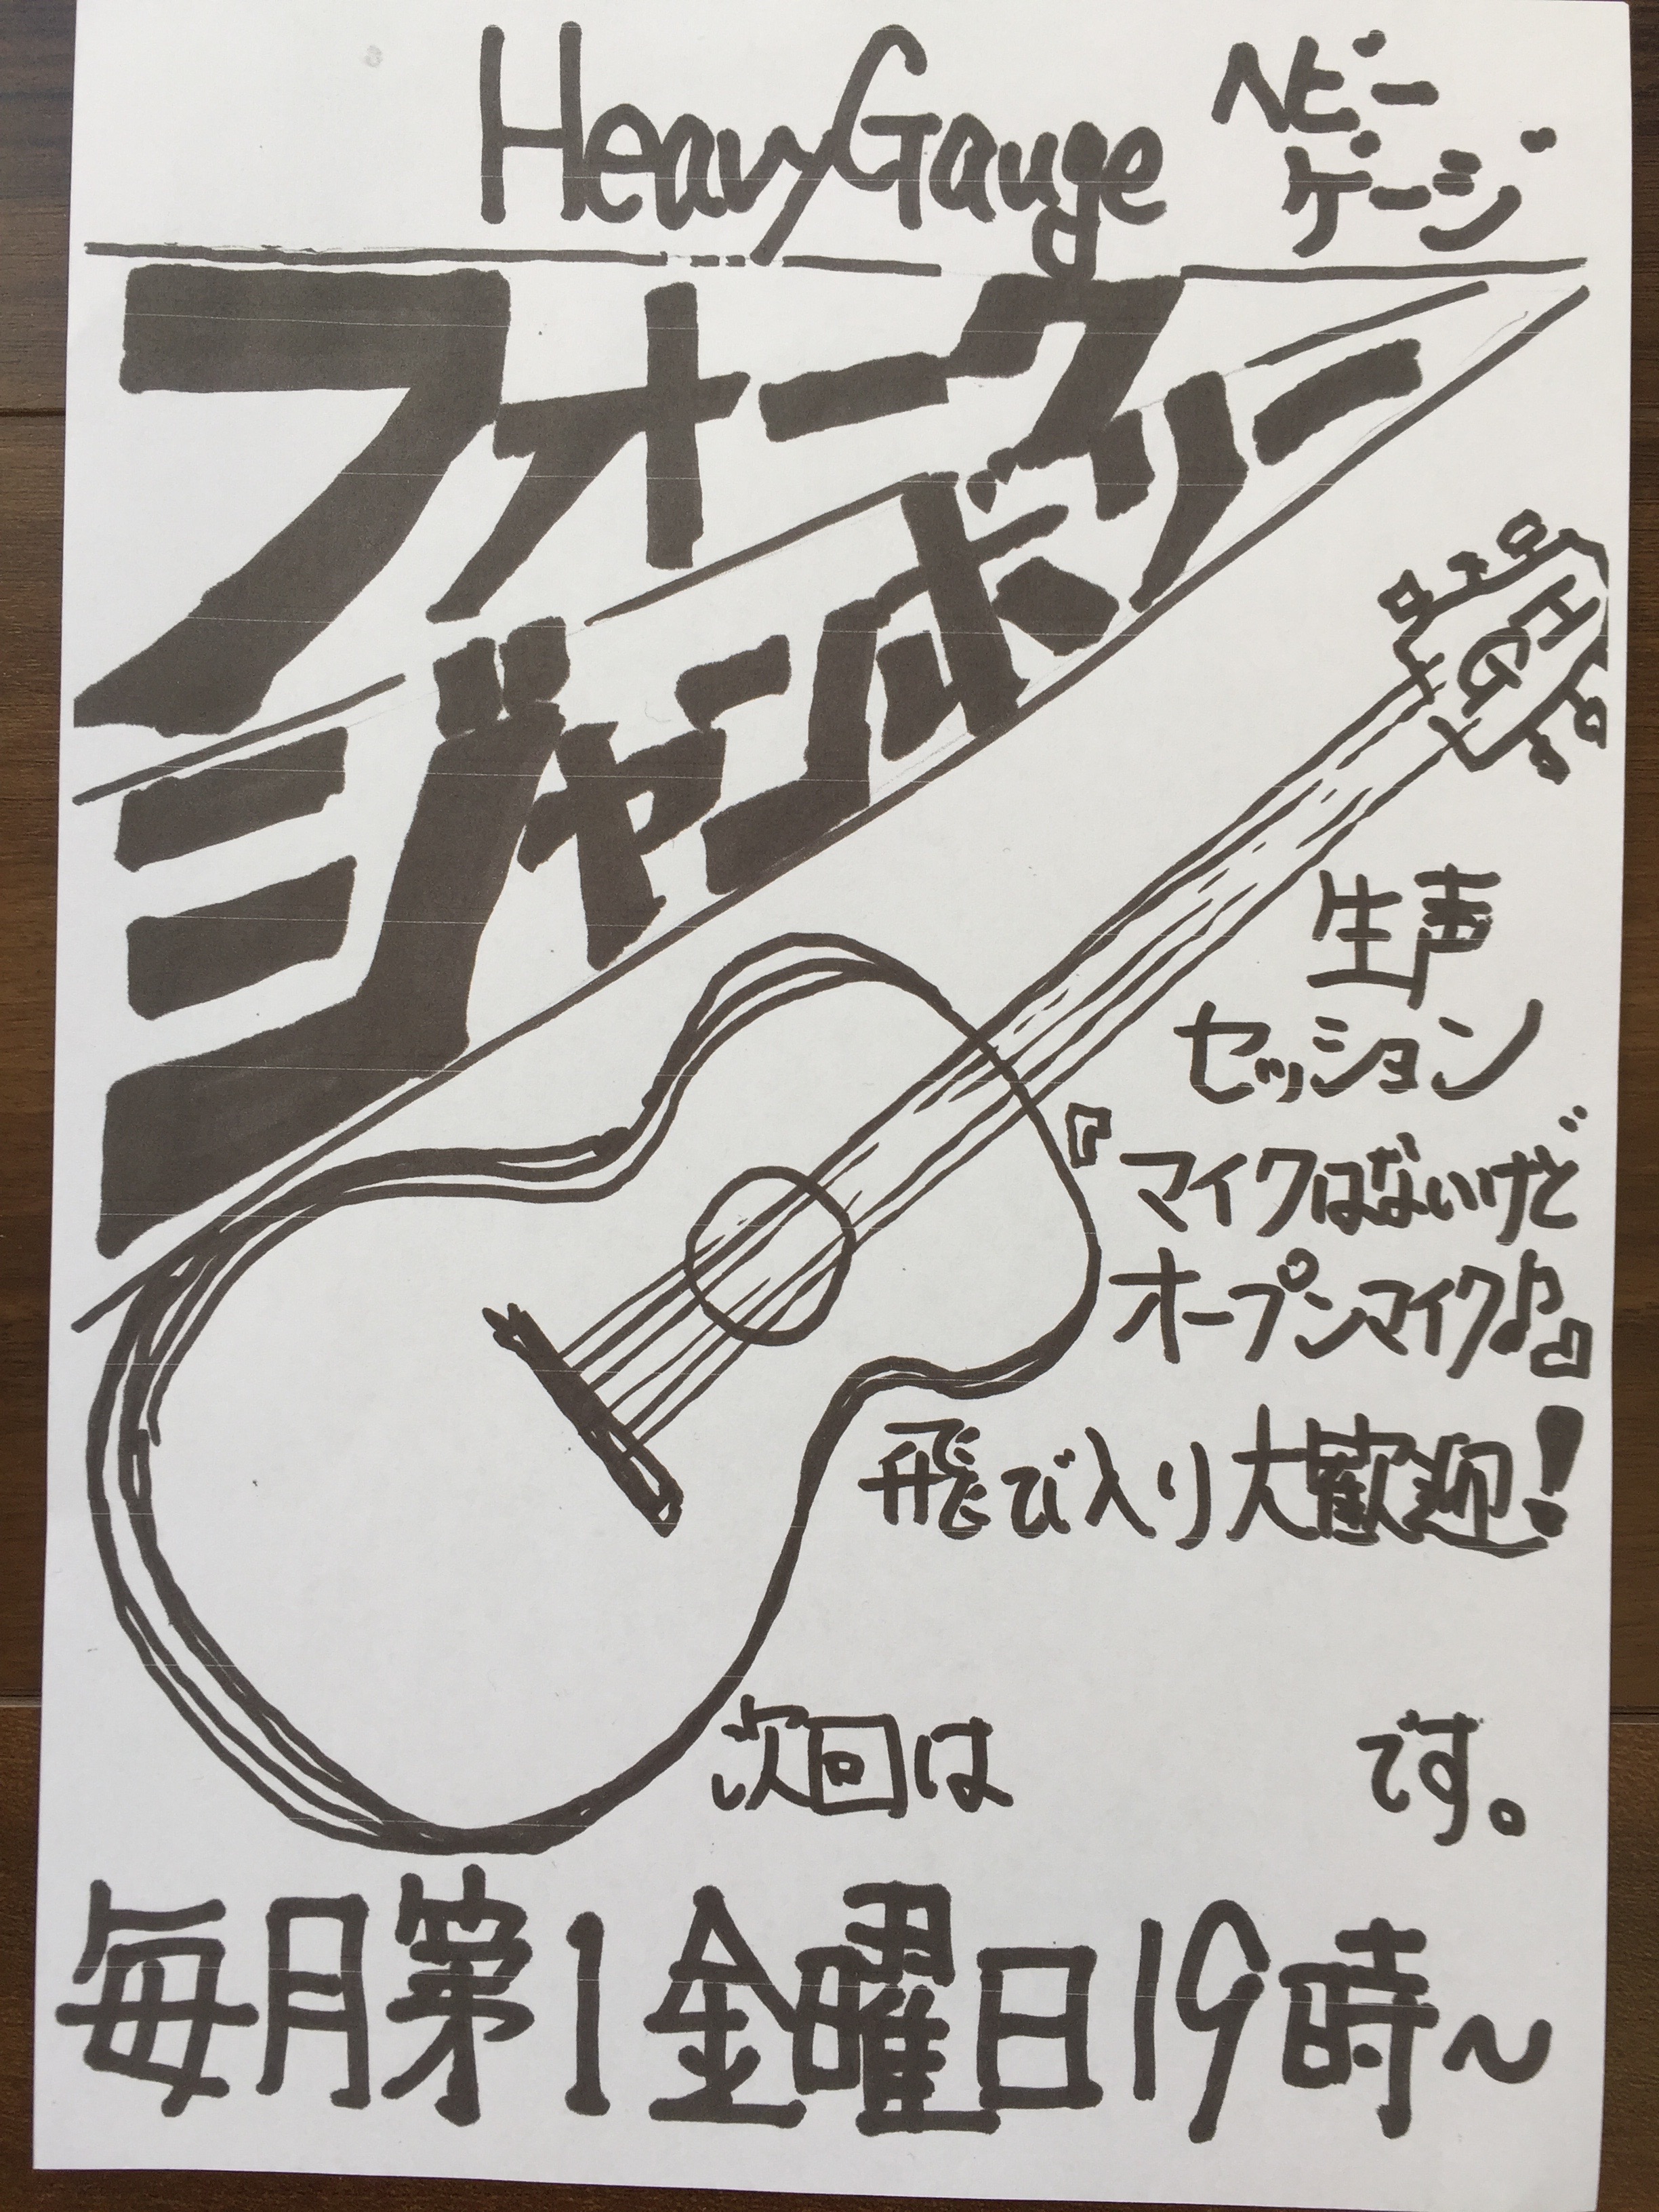 HeavyGauge
ヘビー
ゲージ
フォークリー
ジャンボ
HG
生声
セッション
『マイクはないけど
オープンマイク♪』
飛び入り大歓迎!
次回は　　　です。
毎月第1金曜日19時~